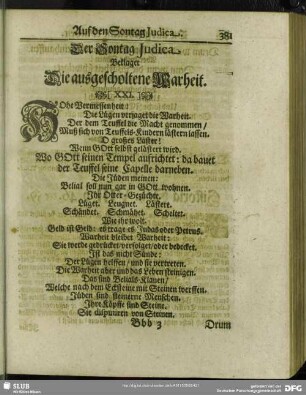 Auf den Sontag Judica. 381
Der Sontag Judica.
Beklaget
Die ausgescholtene Warheit.
XXI.
HOhe Vermessenheit:
Die Lügen verjaget die Warheit.
Der dem Teuffel die Macht genommen/
Muß sich von Teuffels-Kindern lästern lassen.
O grosses Laster!
Wenn GOtt selbst gelästert wird.
Wo GOtt seinen Tempel auffrichtet: da bauet
der Teuffel seine Capelle darneben.
Die Jüden meinen:
Belial soll nun gar in GOtt wohnen.
Ihr Otter-Gezüchte.
Lüget. Leugnet. Lästert.
Schändet. Schmähet. Scheltet.
Wie ihr wolt.
Geld ist Geld: es trage es Judas oder Petrus.
Warheit bleibet Warheit:
Sie werde gedrücket/verfolget/oder bedecket.
Ist das nicht Sünde:
Der Lügen helffen/und sie vertreten.
Die Warheit aber und das Leben steinigen.
Das sind Belials-Klauen/
Welche nach dem Ecksteine mit Steinen werffen.
Jüden sind steinerne Menschen.
Ihre Köpffe sind Steine.
Sie disputiren von Steinen.
Bbb 3 Drum
SLUB
Wir führen Wissen.